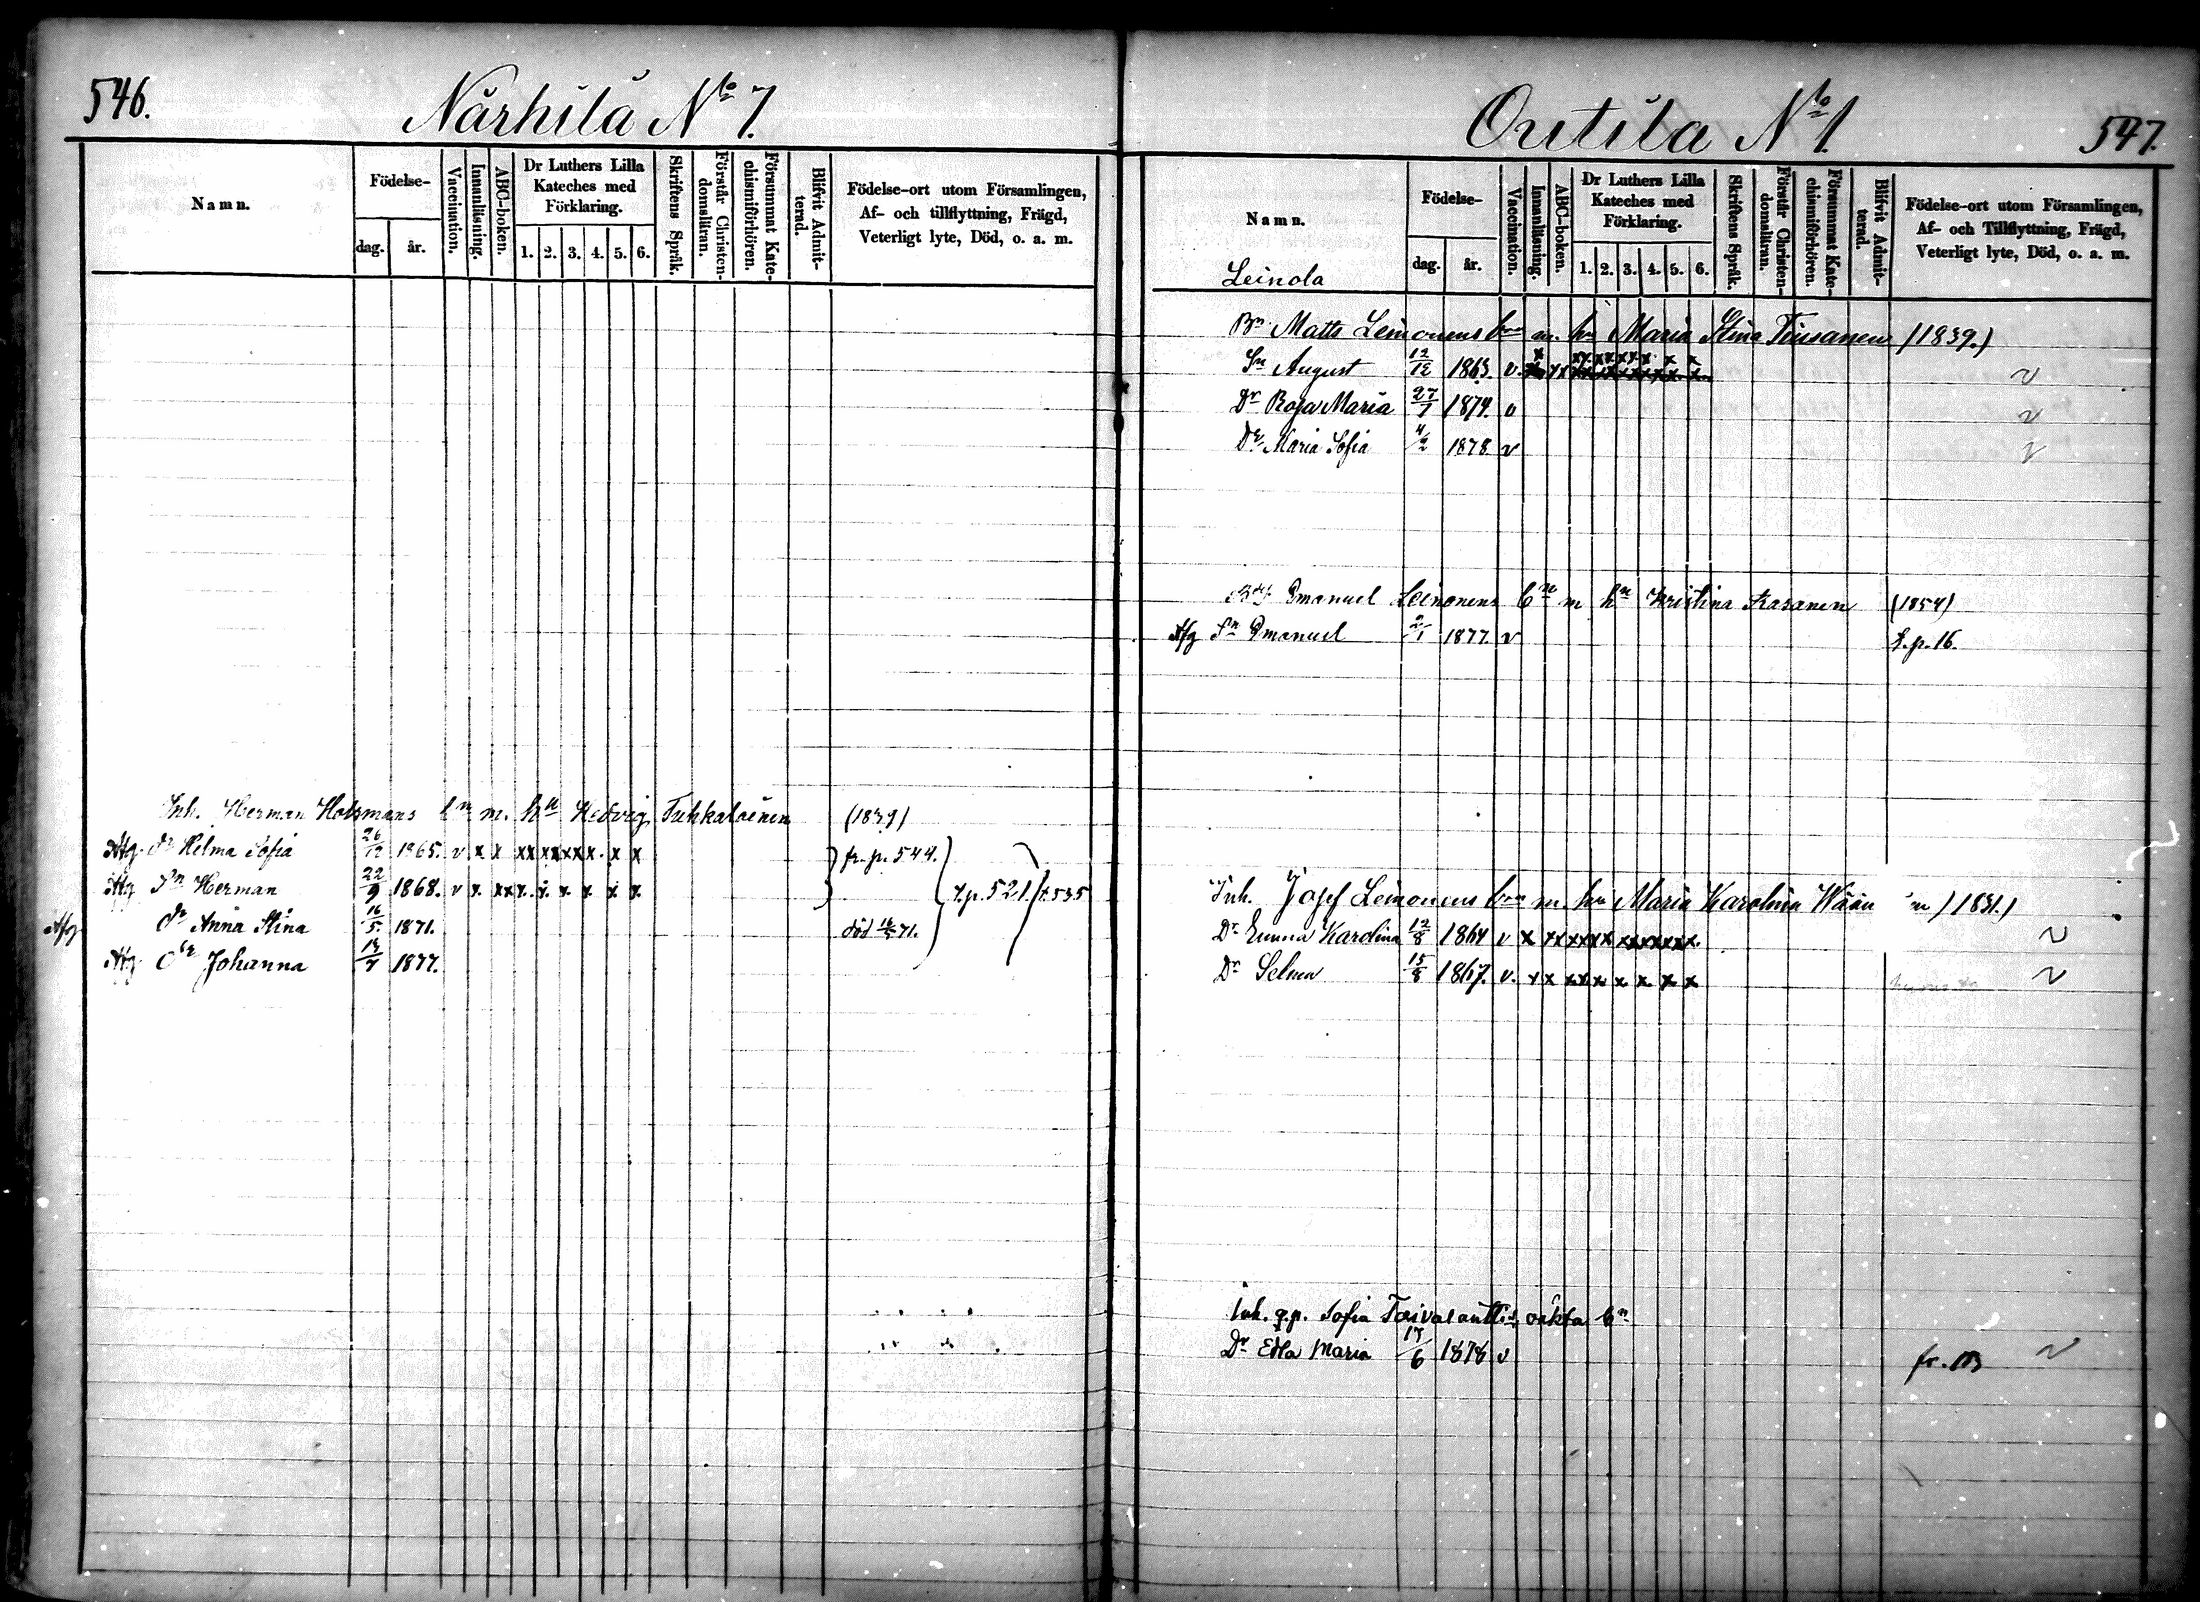 546.
Närhilä No 7.
Namn.
Födelse-
dag. år.
Vaccination.
Innanläsning.
ABC-boken.
Dr Luthers Lilla Kateches med Förklaring.
1. 2. 3. 4. 5. 6.
Skriftens Språk.
Förstår Christendomsläran.
Försummat Katechismiförhören.
Blifvit Admitterad.
Födelse-ort utom Församlingen, Af- och tillflyttning, Frägd, Veterligt lyte, Död, o. a. m.
Inh. Herman Holsmans bn m. hu Hedvig Tuhkalainen (1839)
Afg Dr Hilma Sofia 26/12 1865. v x x xx xx xx x. x x fr. p. 544.
Afg Sn Herman 22/9 1868. v x. xx x. x. x x x x t. p. 521. t. 535
Afg Dr Anna Stina 16/5 1871. död 71.
Afg Dr Johanna 13/7 1877.
547.
Outila No 1.
Namn.
Födelse-
dag. år.
Vaccination.
Innanläsning.
ABC-boken.
Dr Luthers Lilla Kateches med Förklaring.
1. 2. 3. 4. 5. 6.
Skriftens Språk.
Förstår Christendomsläran.
Försummat Katechismiförhören.
Blifvit Admitterad.
Födelse-ort utom Församlingen, Af- och Tillflyttning, Frägd, Veterligt lyte, Död, o. a. m.
Leinola
Bn Matts Leinonens bn m. hu Maria Stina Tiusanen (1839.)
Sn August 12/12 1863. v.
Dr Rosa Maria 27/7 1874. v
Dr Maria Sofia 4/2 1878. v
Emanuel Leinonens bn m hu Kristina Kasanen (1854)
Afg Sn Emanuel 2/1 1877. v t. p. 16.
Inh. Josef Leinonens bn m. hu Maria Karolina (1831.)
Dr Emma Karolina 12/8 1864 v x xxxxxx xxxxxx.
Dr Selma 15/8 1867. v. x x x x x x x x x
Inh. q.p. Sofia oäkta bn
Dr Edla Maria 17/6 1878 v fr.